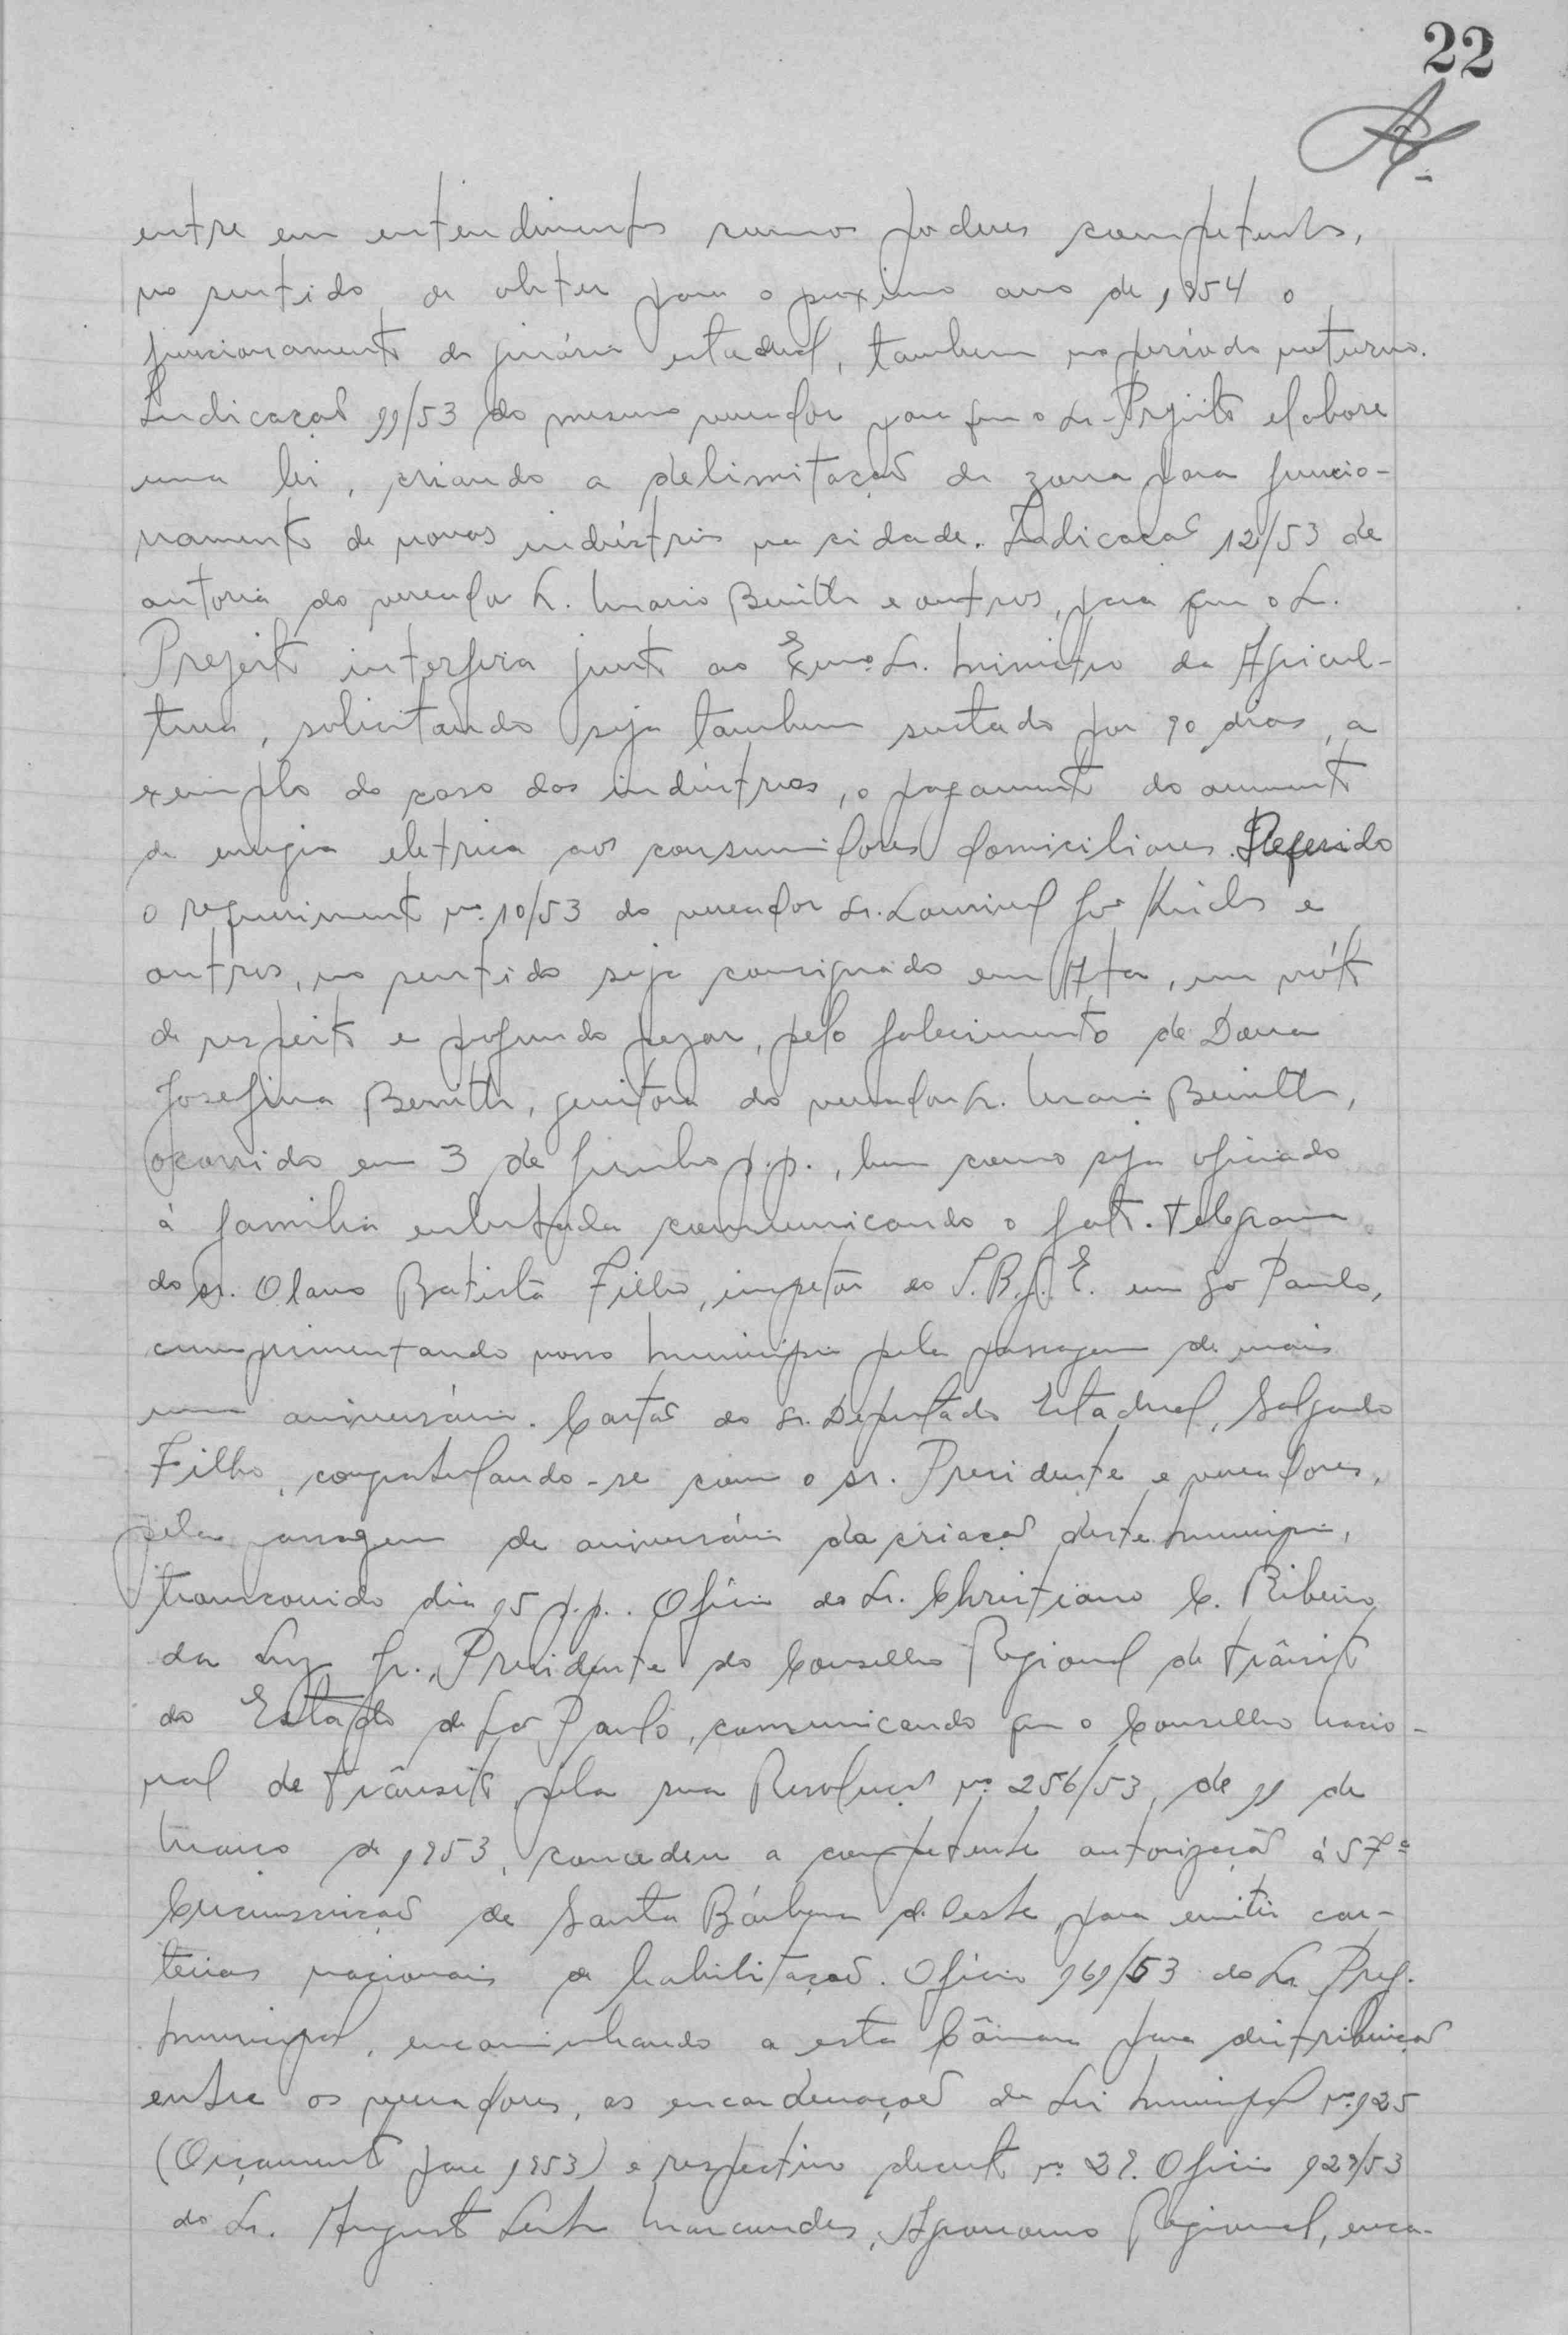 22
entre em entendimentos com os poderes competentes,
no sentido de obter para o proximo ano de 1954 o
funcionamento do ginásio estadual, tambem no periodo noturno.
Indicação 11/53 do mesmo vereador para que o Sr. Prefeito elabore
uma lei, criando a delimitação da zona para funcio-
namento de novas indústrias na cidade. Indicação 12/53 de
autoria do vereador Sr. Mario e outros, para que o Sr.
Prefeito interfira junto ao Exmo. Sr. Ministro da Agricul-
tura, solicitando seja tambem sustado por 90 dias, a
exemplo do caso das indústrias, o pagamento do aumento
da energia eletrica aos consumidores domiciliares. Deferido
o requerimento nº. 10/53 do vereador Sr. Lourival e
outros, no sentido seja consignado em Ata, um vóto
de respeito e profundo pezar, pelo falecimento de Dona
Josefina, genitora do vereador Sr. Mario,
ocorrido em 3 de Junho p.p., bem como seja oficiado
á familia enlutada comunicando o fato. Telegrama
do sr. Olavo Batista Filho, inspetor do I.B.G.E. em São Paulo,
cumprimentando nosso Municipio pela passagem de mais
um aniversário. Cartão do Sr. Deputado Estadual, Salgado
Filho, congratulando-se com o sr. Presidente e vereadores,
pela passagem de aniversário da criação deste Municipio,
transcorrido dia 15 p.p. Oficio do Sr. Christiano C. Ribeiro
da Luz Jr., Presidente do Conselho Regional de Trânsito
do Estado de São Paulo, comunicando que o Conselho Nacio-
nal de Trânsito, pela sua Resolução nº. 256/53, de 11 de
Março de 1953, concedeu a competente autorização á 57ª
Circunscrição de Santa Bárbara d'Oeste, para emitir car-
teiras nacionais de habilitação. Oficio 169/53 do Sr. Pref.
Municipal, encaminhando a esta Câmara para distribuição
entre os vereadores, as encadernações da Lei Municipal nº. 125
(Orçamento para 1953) e respectivo decreto nº. 29. Oficio 129/53
do Sr. Augusto Marcondes, Agronomo Regional, enca-